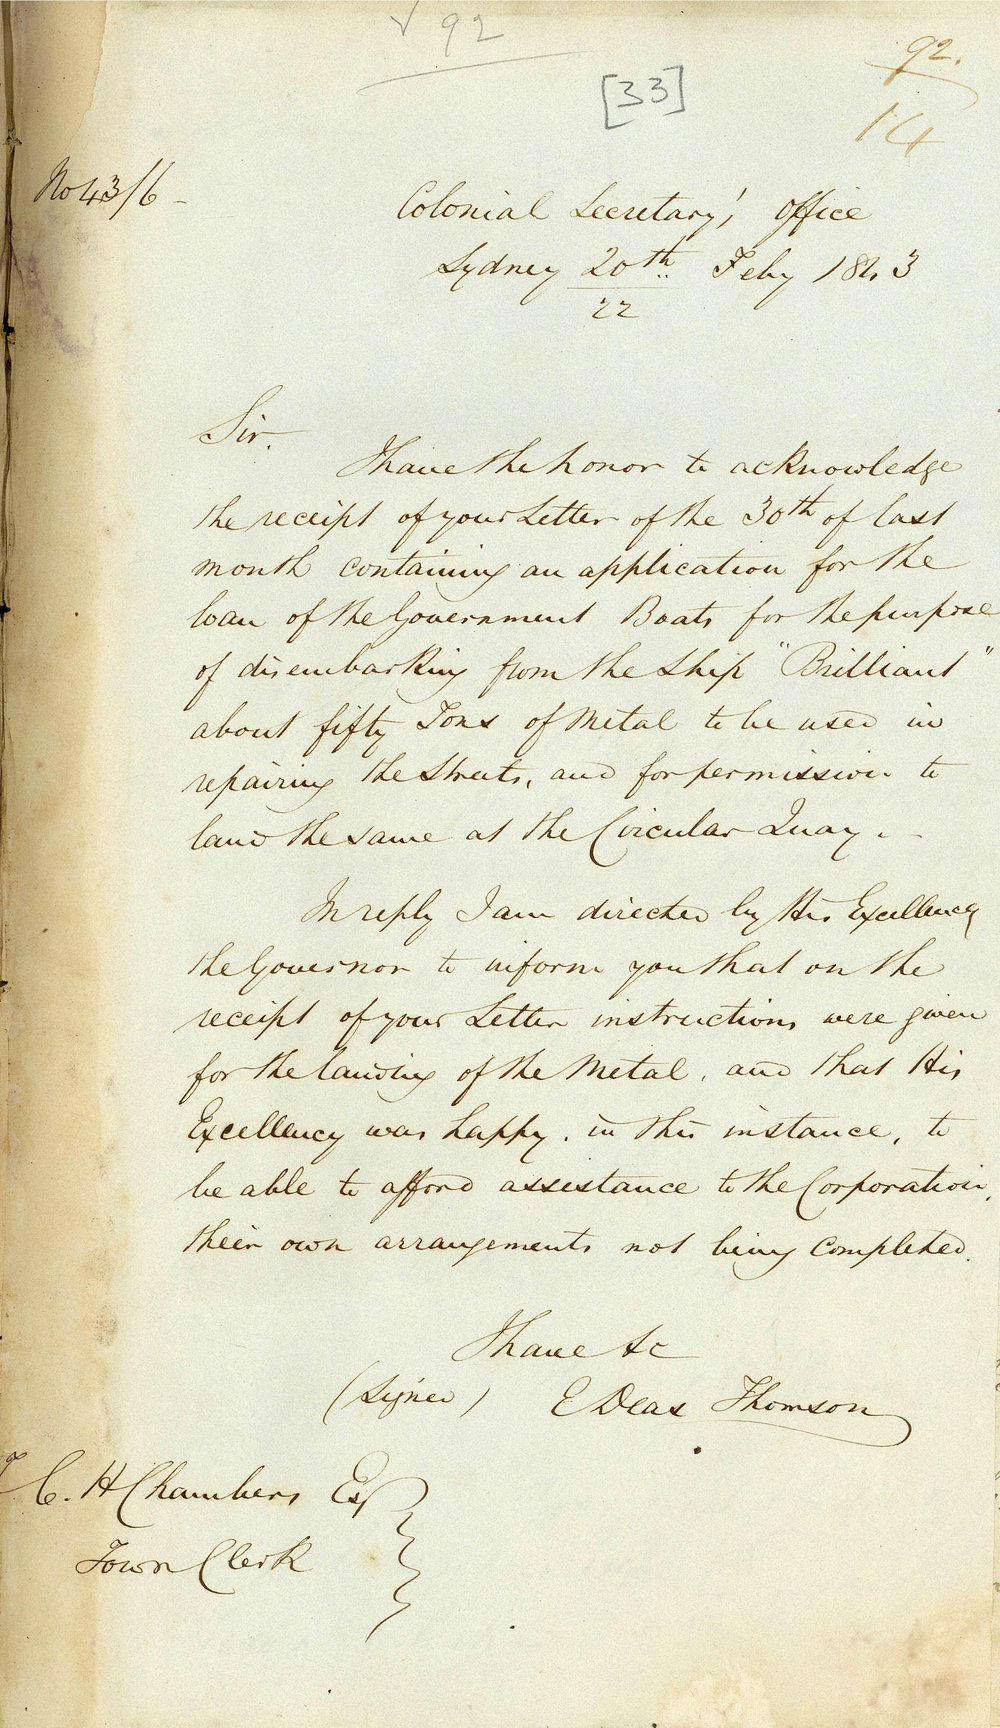 √ 92
92.
[33]
14
No 43/6 -
Colonial Secretary's Office
Sydney 20th Feby 1843
22
Sir.
I have the honor to acknowledge
the receipt of your Letter of the 30th of last
month containing an application for the
loan of the Government Boats for the purpose
of disembarking from the Ship "Brilliant"
about fifty Tons of Metal to be used in
repairing the Streets, and for permission to
land the same at the Circular Quay. -
In reply I am directed by His Excellency
the Governor to inform you that on the
receipt of your Letter instructions were given
for the landing of the Metal, and that His
Excellency was happy, in this instance, to
be able to afford assistance to the Corporation,
their own arrangements not being completed.
I have &c
(Signed) E Deas Thomson
C. H Chambers Esq
Town Clerk